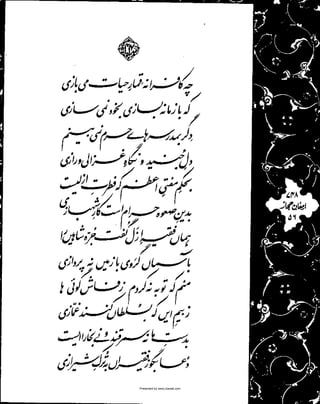 چہ کافرانہ قمار حیات می بازی
کہ با زمانہ بسازی بخود نمی سازی
دگر بمدرسہ ہاے حرم نمی بینم
دل جنید و نگاہ غزالی و رازی
بحکم مفتی اعظم کہ فطرت ازلیست
بدین صعوہ حرام است کار شہبازی
ہماں فقیہ ازل گفت جرہ شاہیں را
بآسماں گروی با زمیں نہ پردازی
منم کہ توبہ نہ کردم ز فاش گوئی ہا
ز بیم ایں کہ بسلطاں کنند غمازی
بدست ما نہ سمرقند و نے بخارا ایست
دعا بگو ز فقیراں بہ ترک شیرازی
۷۴۸
ارمغان حجاز
۵۶
Presented by www.ziaraat.com